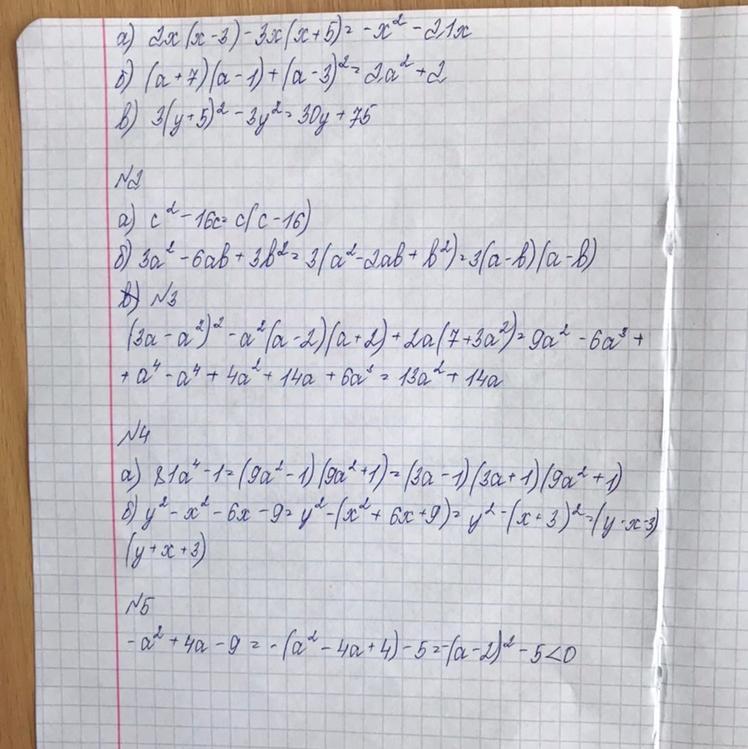 а) 2x(x-3)-3x(x+5)=-x²-21x
б) (a+7)(a-1)+(a-3)²=2a²+2
в) 3(y+5)²-3y²=30y+75
№2
а) c²-16c=c(c-16)
б) 3a²-6ab+3b²=3(a²-2ab+b²)=3(a-b)(a-b)
в) №3
(3a-a²)²-a²(a-2)(a+2)+2a(7+3a²)=9a²-6a³+
+a⁴-a⁴+4a²+14a+6a³=13a²+14a
№4
а) 81a⁴-1=(9a²-1)(9a²+1)=(3a-1)(3a+1)(9a²+1)
б) y²-x²-6x-9=y²-(x²+6x+9)=y²-(x+3)²=(y-x-3)
(y+x+3)
№5
-a²+4a-9=-(a²-4a+4)-5=-(a-2)²-5<0